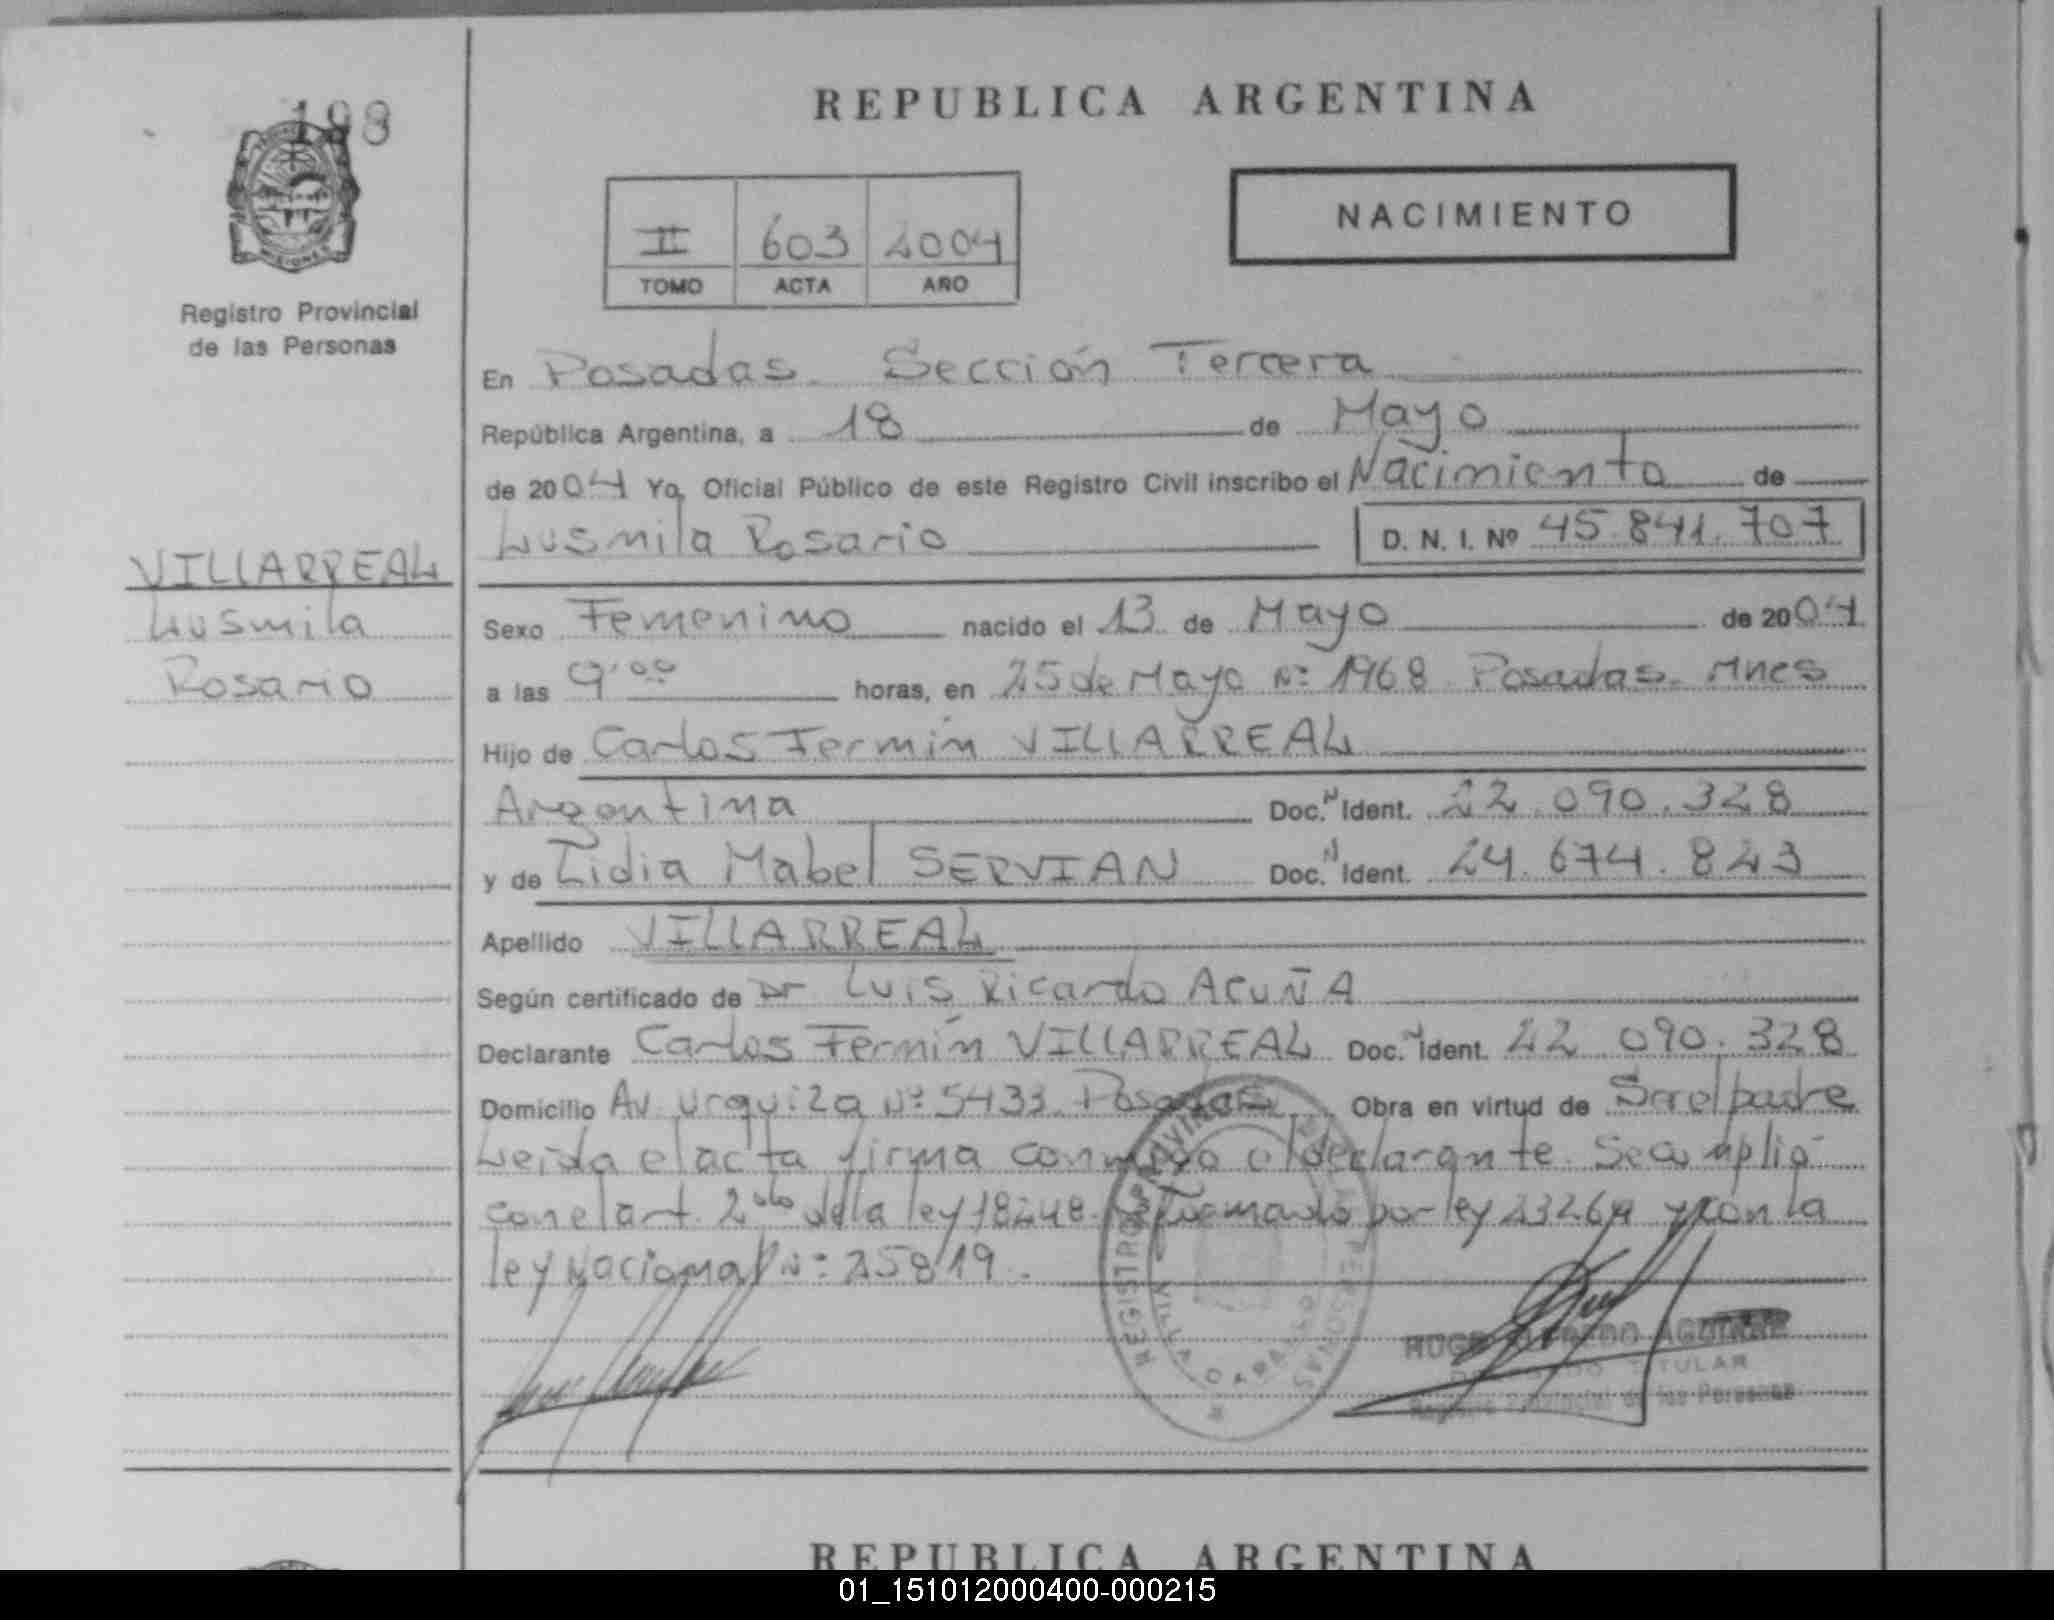 198
REPUBLICA ARGENTINA
NACIMIENTO
II 603 2004
TOMO ACTA AÑO
MISIONES
Registro Provincial
de las Personas
En Posadas. Sección Tercera
República Argentina, a 18 de Mayo
de 2004 Yo, Oficial Público de este Registro Civil inscribo el Nacimiento de
Lusmila Rosario D. N. I. Nº 45.841.707
VILLARREAL
Lusmila
Rosario
Sexo Femenino nacido el 13 de Mayo de 2004
a las 9:00 horas, en 25 de Mayo Nº 1968 Posadas. Mnes
Hijo de Carlos Fermín VILLARREAL
Argentina Doc. N Ident. 22.090.328
y de Lidia Mabel SERVIAN Doc. N Ident. 24.674.823
Apellido VILLARREAL
Según certificado de Dr Luis Ricardo ACUÑA
Declarante Carlos Fermín VILLARREAL Doc. N Ident. 22.090.328
Domicilio Av. Urquiza Nº 5433 Posadas Obra en virtud de Ser el padre
Leida el acta firma conmigo el declarante. Se cumplió
con el art. 2do de la ley 18248. por ley 23264 y con la
ley Nacional Nº 25819.
REGISTRO PROVINCIAL DE LAS PERSONAS
VILLA
HUGO ALFREDO AGUIRRE
TITULAR
Registro Provincial de las Personas
REPUBLICA ARGENTINA
01_151012000400-000215